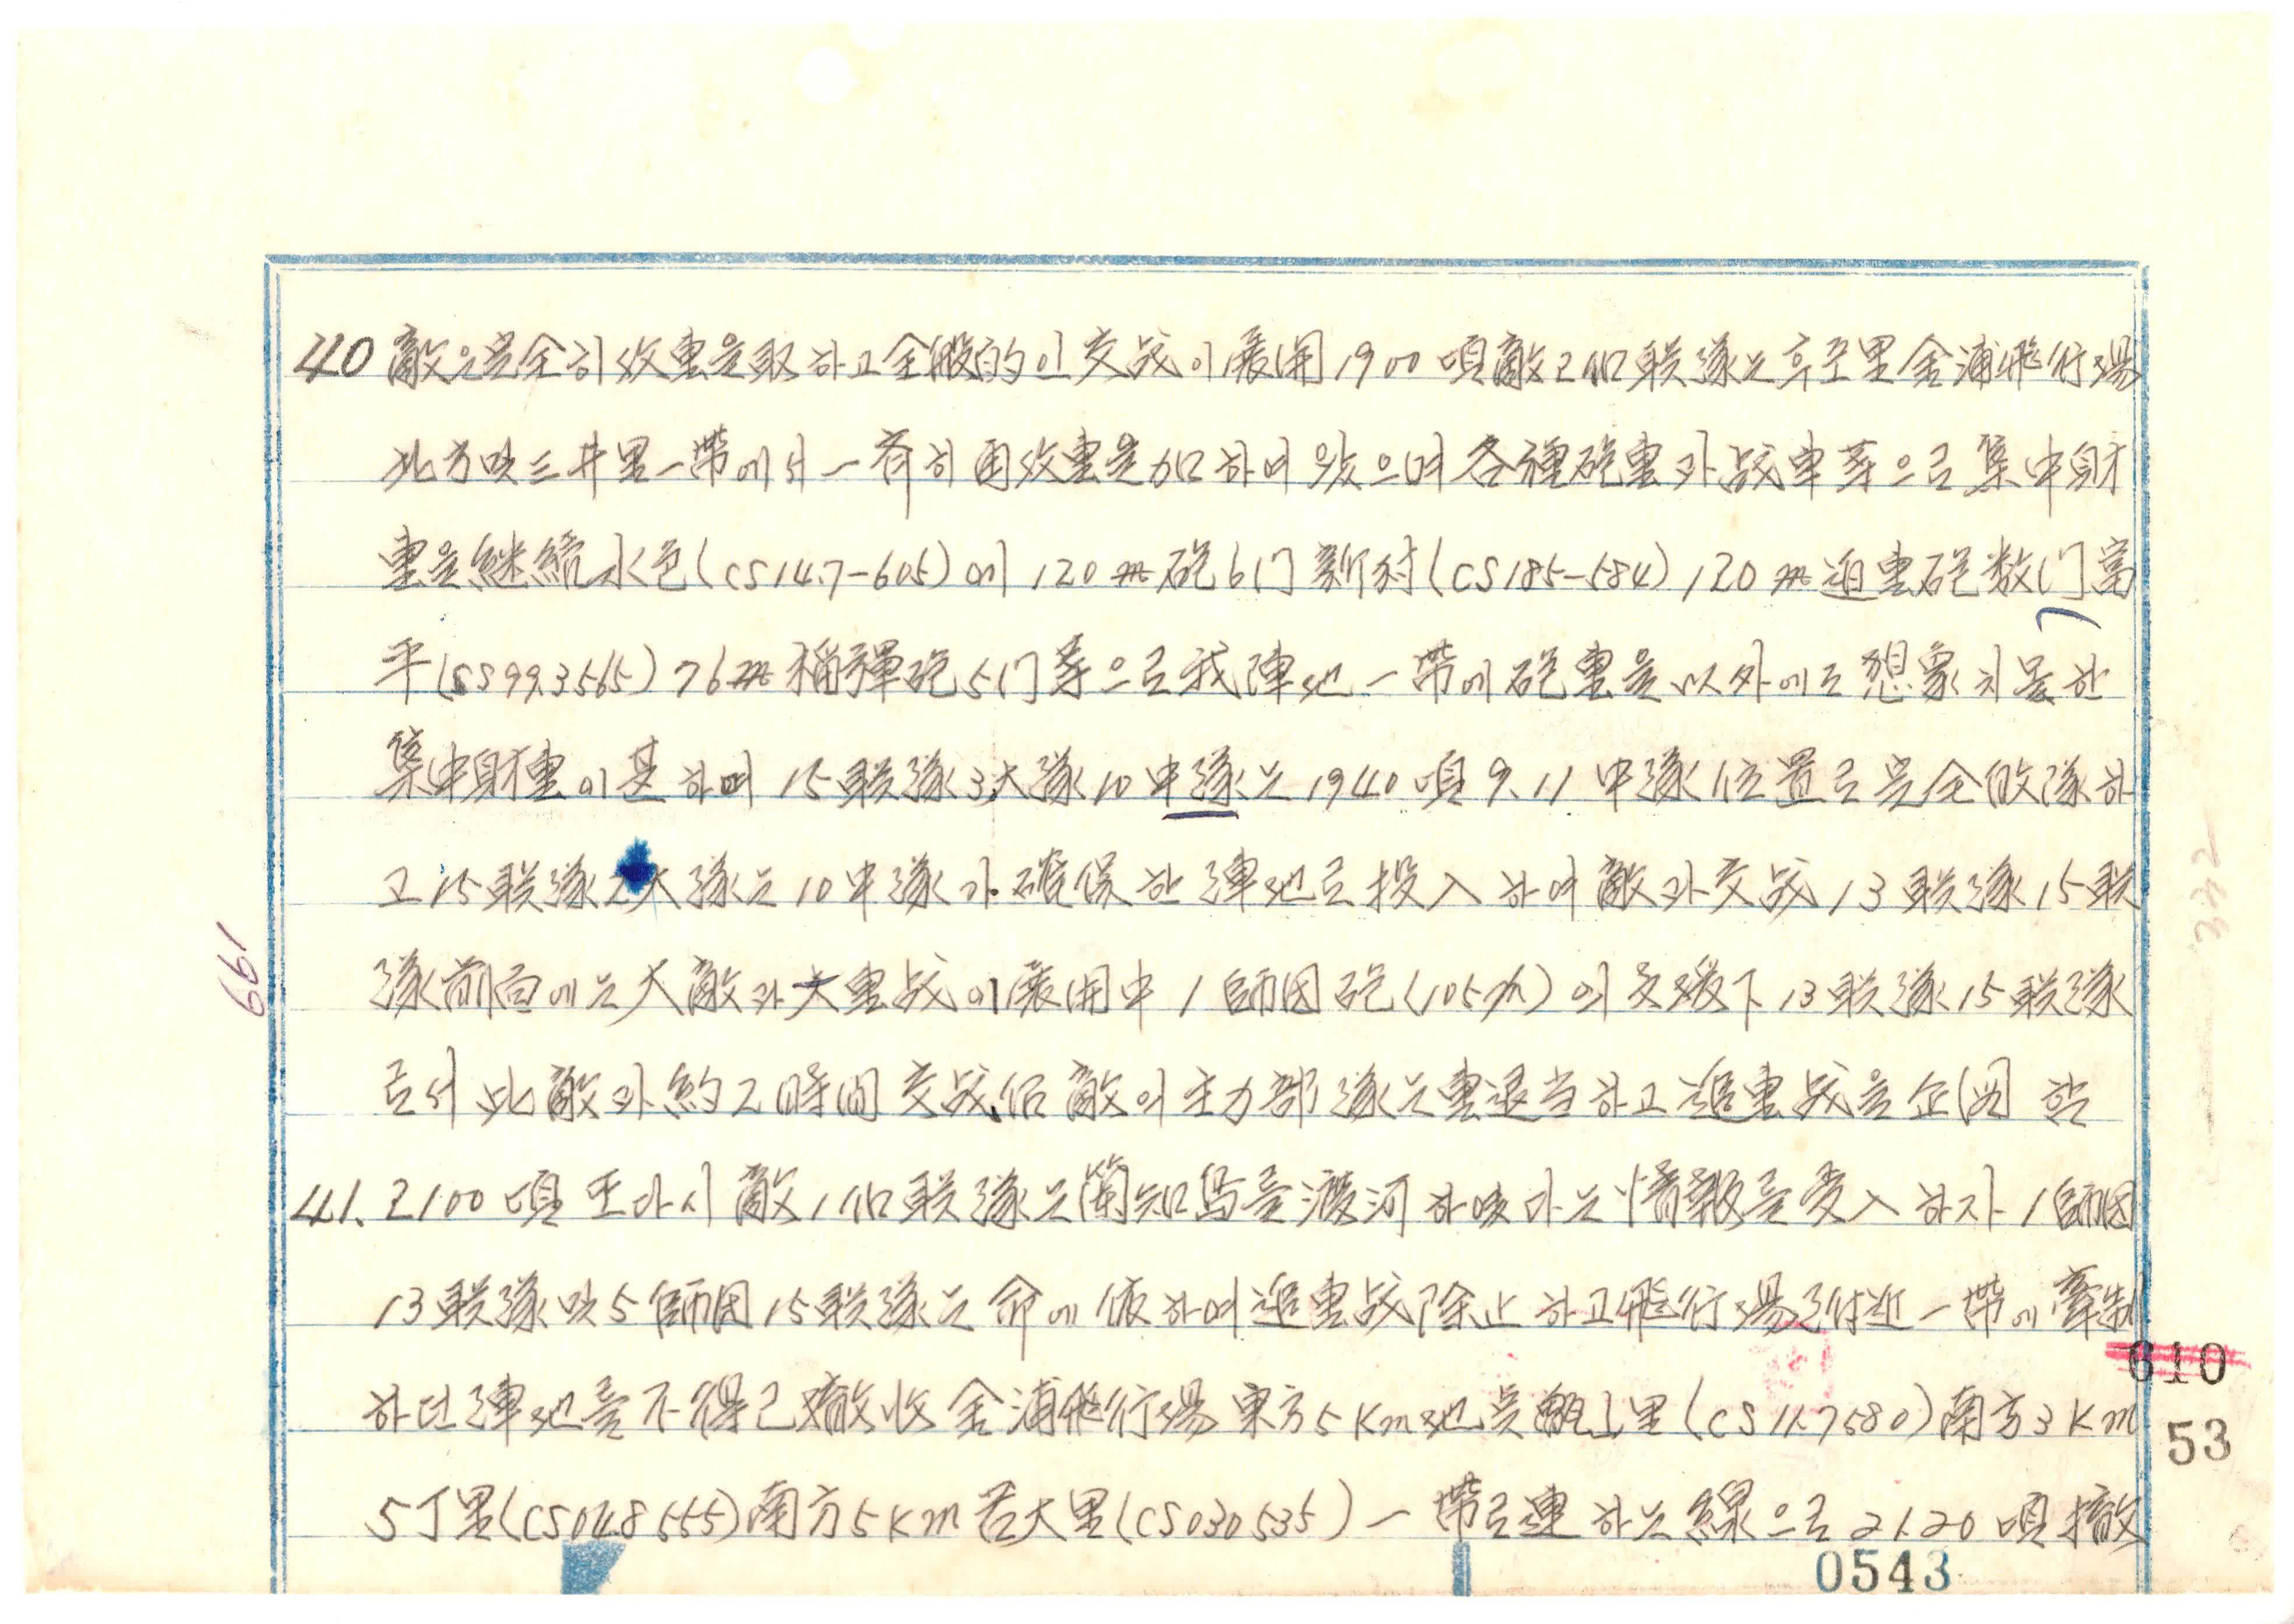 40 敵은完全히攻擊을取하고全般的인交战이展開1900頃敵2個联隊는 里金浦飛行場
北方및三井里一帶에서一齊히用攻擊을加하여왔으며各種砲擊과战車等으로集中射
擊을継續水色(CS14.7-605)에120㎜砲6门新村(CS185-584)120㎜迫擊砲数门富
平(SS99.3565)76㎜ 砲5门等으로我陣地一帶에砲擊을以外에도想象치못한
集中射擊이甚하여15联隊3大隊10中隊는1940頃9.11中隊位置로完全 隊하
고15联隊 大隊는10中隊가確保한陣地로投入하여敵과交战13联隊15联
隊前面에는大敵과大擊战이展開中1師団砲(105㎜)의支援下13联隊15联隊
로서此敵과約2時間交战后敵의主力部隊는擊退当하고追擊战을企図한
41. 2100頃또다시敵1個联隊는蘭知島를渡河하였다는情報를受入하자1師団
13联隊및5師団15联隊는命에依하여追擊战除止하고飛行場附近一帶에牽制
하던陣地를不得已撤收金浦飛行場東方5Km地点 里(CS11.7580)南方3Km
5丁里(CS04.8555)南方5Km 大里(CS030535)一帶로連하는線으로2120頃撤
199
242
610
53
0543